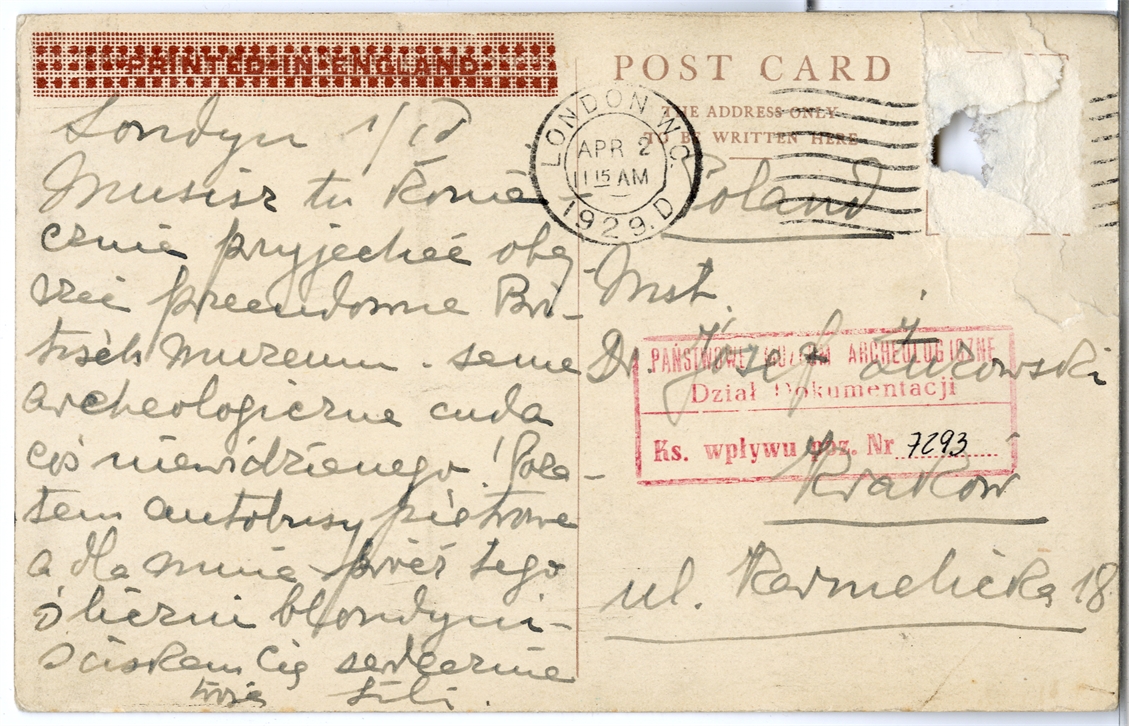 PRINTED-IN-ENGLAND
Londyn 1/IV
Musisz tu konie
cznie przyjechać obej-
rzeć przecudowne Bri-
tisch muzeum. same
archeologiczne cuda
coś niewidzianego! Poza-
tem autobusy piętrowe
a dla mnie prócz tego
śliczni blondyni-
Ściskam Cię serdecznie
twoja Lili.
POST CARD
THE ADDRESS ONLY
TO BE WRITTEN HERE
LONDON W.C.
APR 2
11 15 AM
1929. D
Poland
Mst.
Dr. Józef Żurowski
PAŃSTWOWE MUZEUM ARCHEOLOGICZNE
Dział Dokumentacji
Ks. wpływu poz. Nr 7293
Kraków
ul. Karmelicka 18